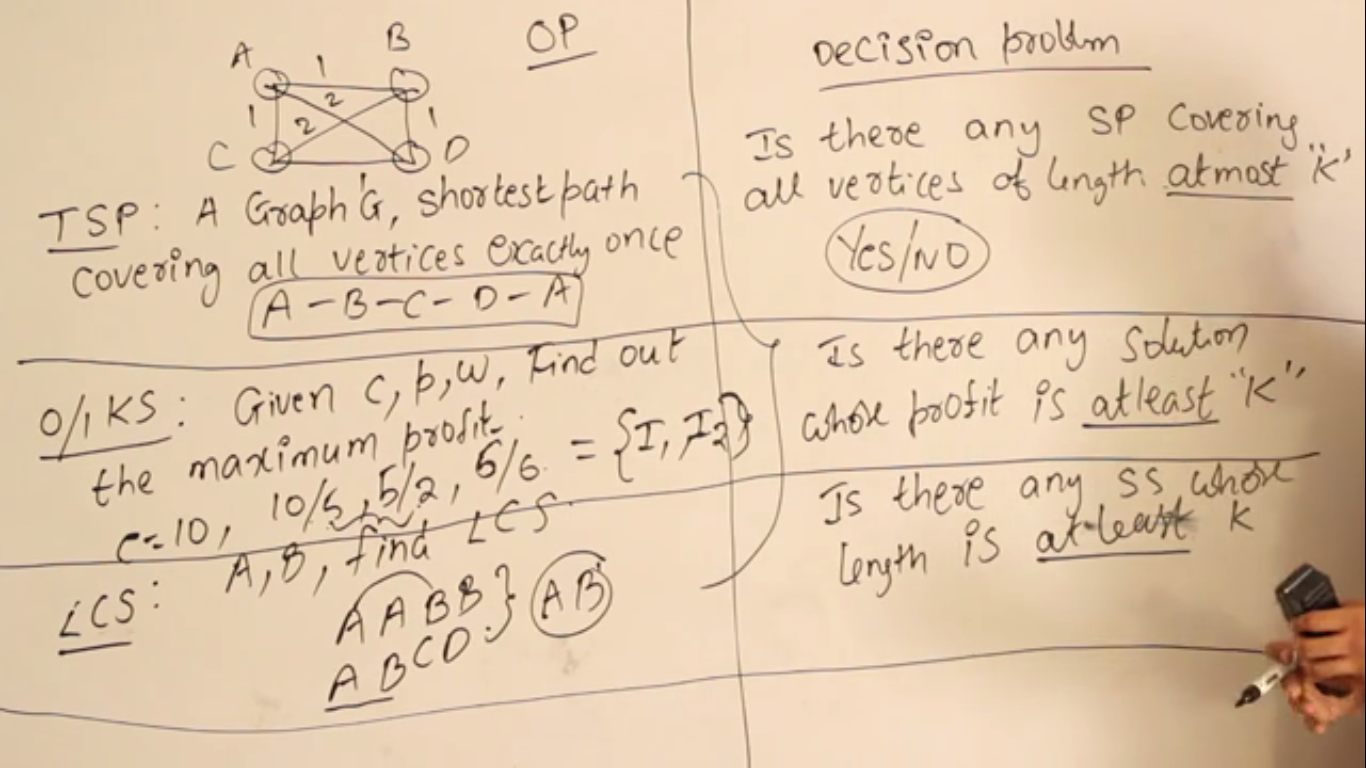 OP
A
B
1
2
1
2
1
C
D
1
TSP: A Graph 'G', shortest path
covering all vertices exactly once
A - B - C - D - A
0/1 KS: Given C, p, w, Find out
the maximum profit.
C=10, 10/5, 5/2, 6/6 = {I1, I2}
LCS: A, B, find LCS
A A B B } AB
A B C D
Decision problem
Is there any SP covering
all vertices of length atmost "K"
Yes/NO
Is there any Solution
whose profit is atleast "K"
Is there any SS whose
length is at-least K